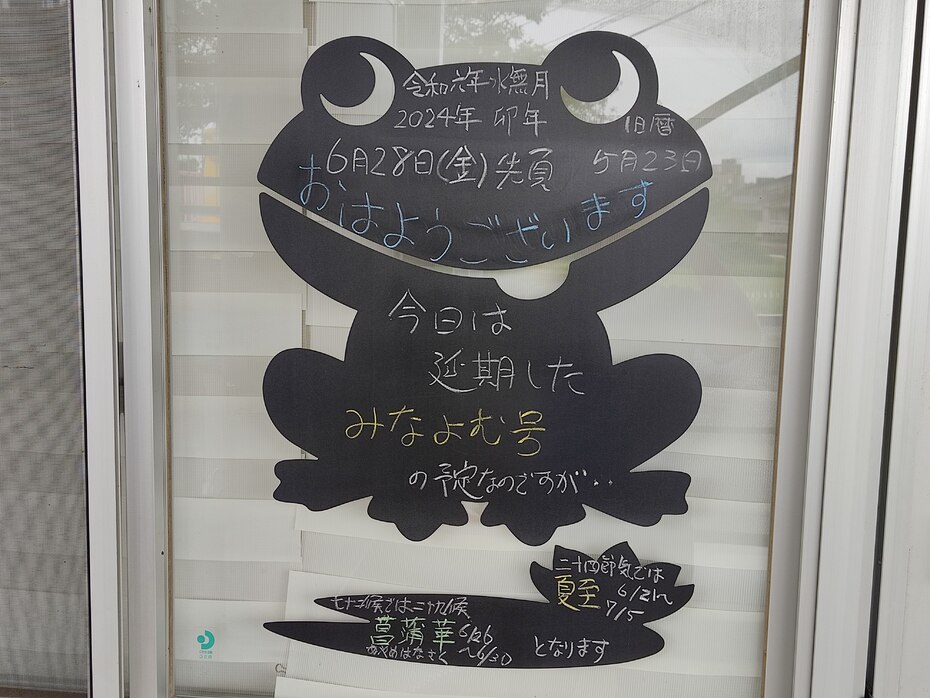 令和六年水無月
2024年 卯年
旧暦
6月28日(金)先負
5月23日
おはようございます
今日は
延期した
みなよむ号
の予定なのですが‥
二十四節気では
夏至 6/21~
7/5
七十二候では二十九候
菖蒲華 6/26
あやめはなさく ~6/30
となります